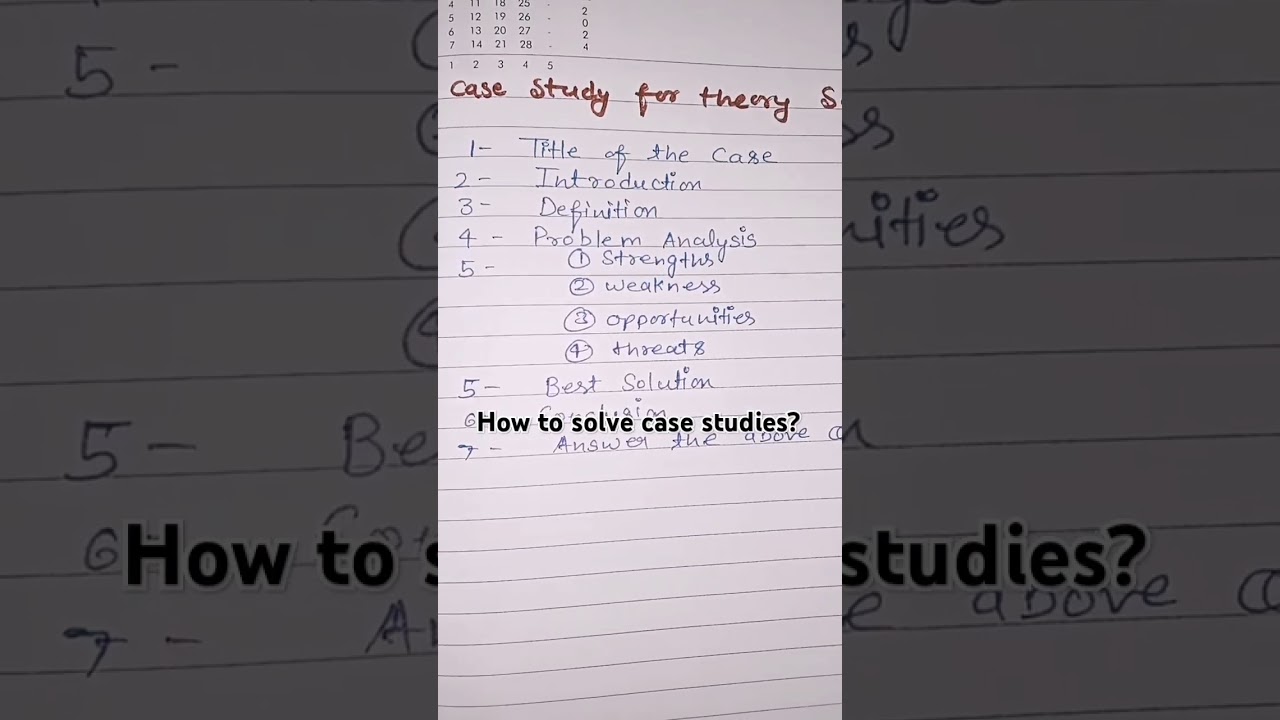 4 11 18 25 -
5 12 19 26 - 2
6 13 20 27 - 0
7 14 21 28 - 2
4
1 2 3 4 5
Case Study for theory S
1- Title of the Case
2- Introduction
3- Definition
4- Problem Analysis
5- ① Strengths
② weakness
③ opportunities
④ threats
5- Best Solution
6- Conclusion
How to solve case studies?
7- Answer the above